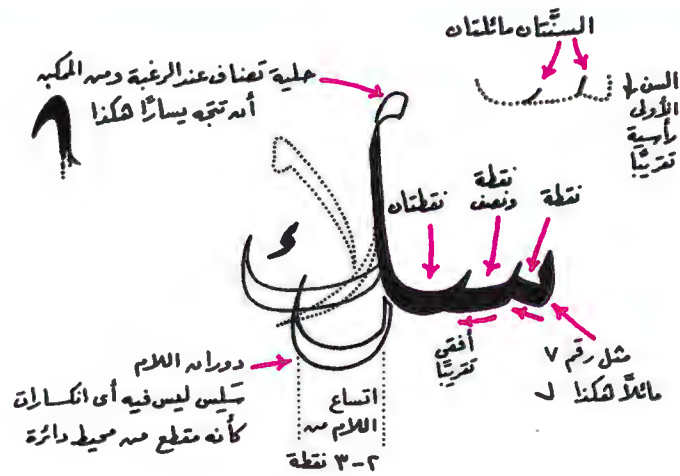 السنَّتان مائلتان
حلية تضاف عند الرغبة ومن الممكن
أن تتجه يسارًا هكذا
السن
الأولى
رأسية
تقريبًا
نقطة
نقطة
ونصف
نقطتان
أفقى
تقريبًا
مثل رقم ٧
مائلاً هكذا
دوران اللام
سَلِس ليس فيه أى انكسارات
كأنه مقطع من محيط دائرة
اتساع
اللام من
٢-٣ نقطة